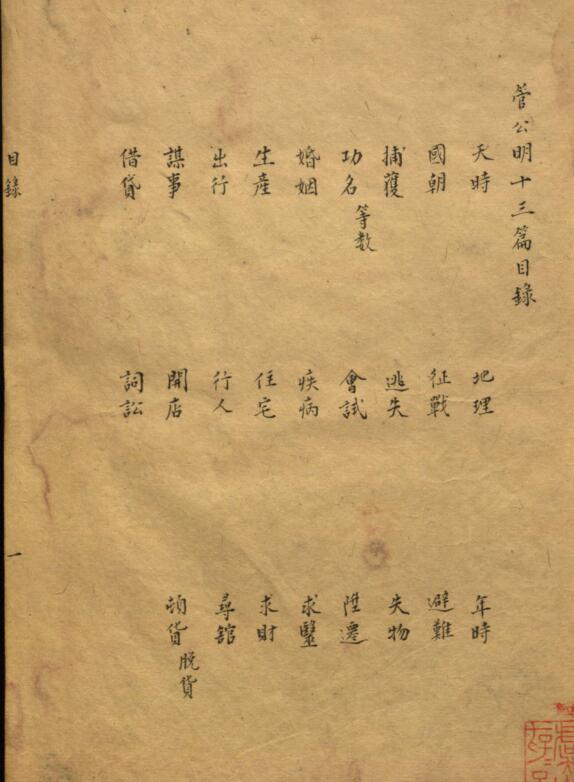 管公明十三篇目錄
天時 地理 年時
國朝 征戰 避難
捕獲 逃失 失物
功名等数 會試 陞遷
婚姻 疾病 求醫
生產 住宅 求財
出行 行人 尋館
謀事 開店 頓貨脫貨
借貸 詞訟
目錄
一